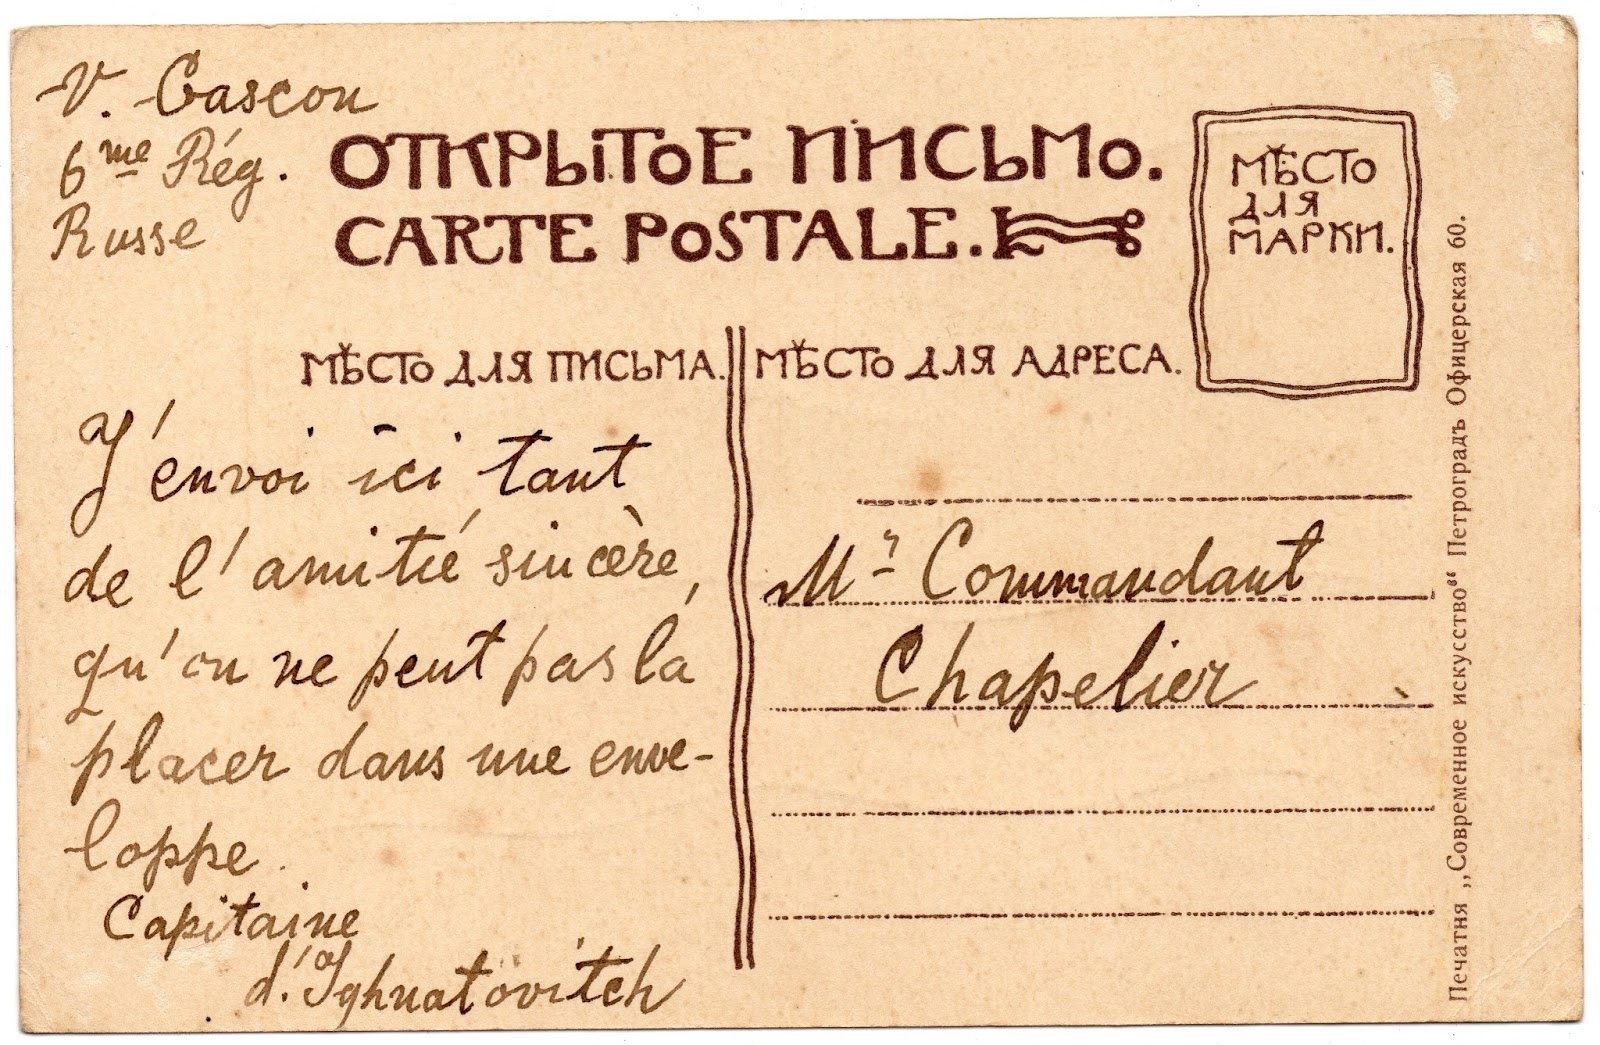 V. Gascon
6me Rég.
Russe
ОТКРЫТОЕ ПИСЬМО.
CARTE POSTALE.
МѢСТО
ДЛЯ
МАРКИ.
МѢСТО ДЛЯ ПИСЬМА.
J'envoi ici tant
de l'amitié sincère,
qu'on ne peut pas la
placer dans une enve-
loppe.
Capitaine
d'Ighnatovitch
МѢСТО ДЛЯ АДРЕСА.
Mr Commandant
Chapelier
Печатня „Современное искусство“ Петроградъ Офицерская 60.